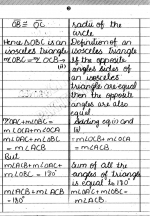 OB ≅ OC
radii of the
circle
Hence BOBC is
an isosceles triangle
m∠OBC = m∠OCB →
(ii)
Definition of an
isosceles triangle
If the opposite
angles sides of
an isosceles
triangle are equal
then the opposite
angles are also
equal.
m∠OAC + m∠OBC =
m∠OCA + m∠OCB
m∠OAC + m∠OBC
= m∠ACB
But
m∠ACB + m∠OAC +
m∠OBC = 180°
m∠ACB + m∠ACB
= 180°
Adding eq (i) and
(ii)
= m∠OCB + m∠OCA
= m∠ACB
Sum of all the
angles of triangle
is equal to 180°
m∠OAC + m∠OBC =
m∠ACB.